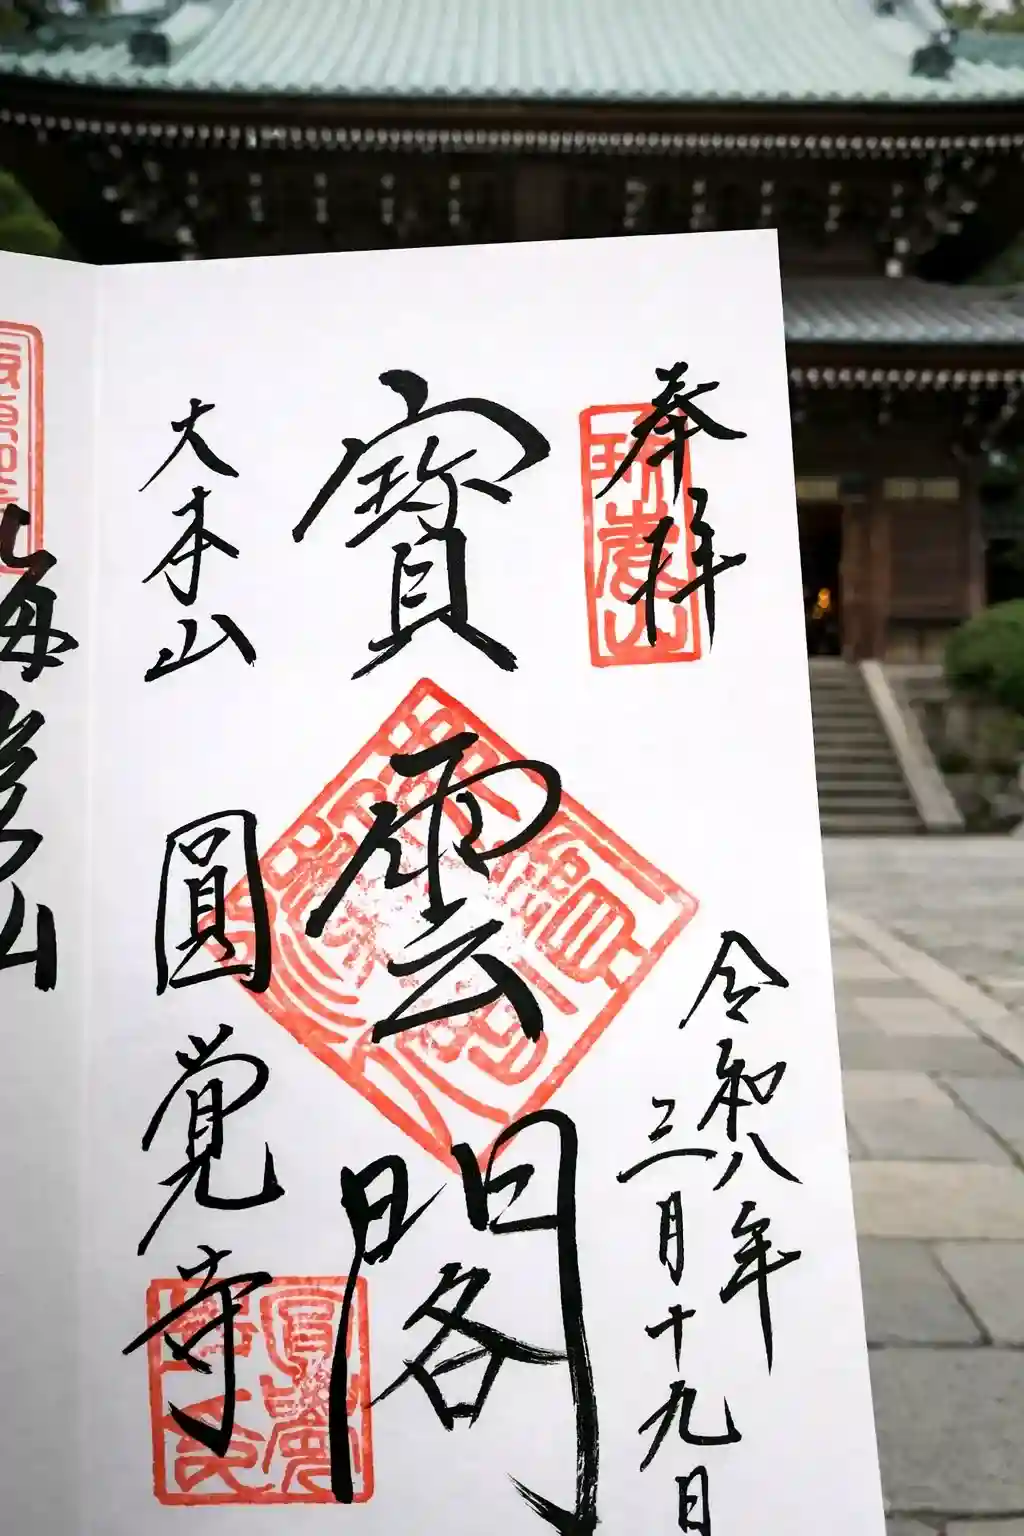 奉拜
令和八年
三月十九日
寶雲閣
大本山 圓覚寺
海光山